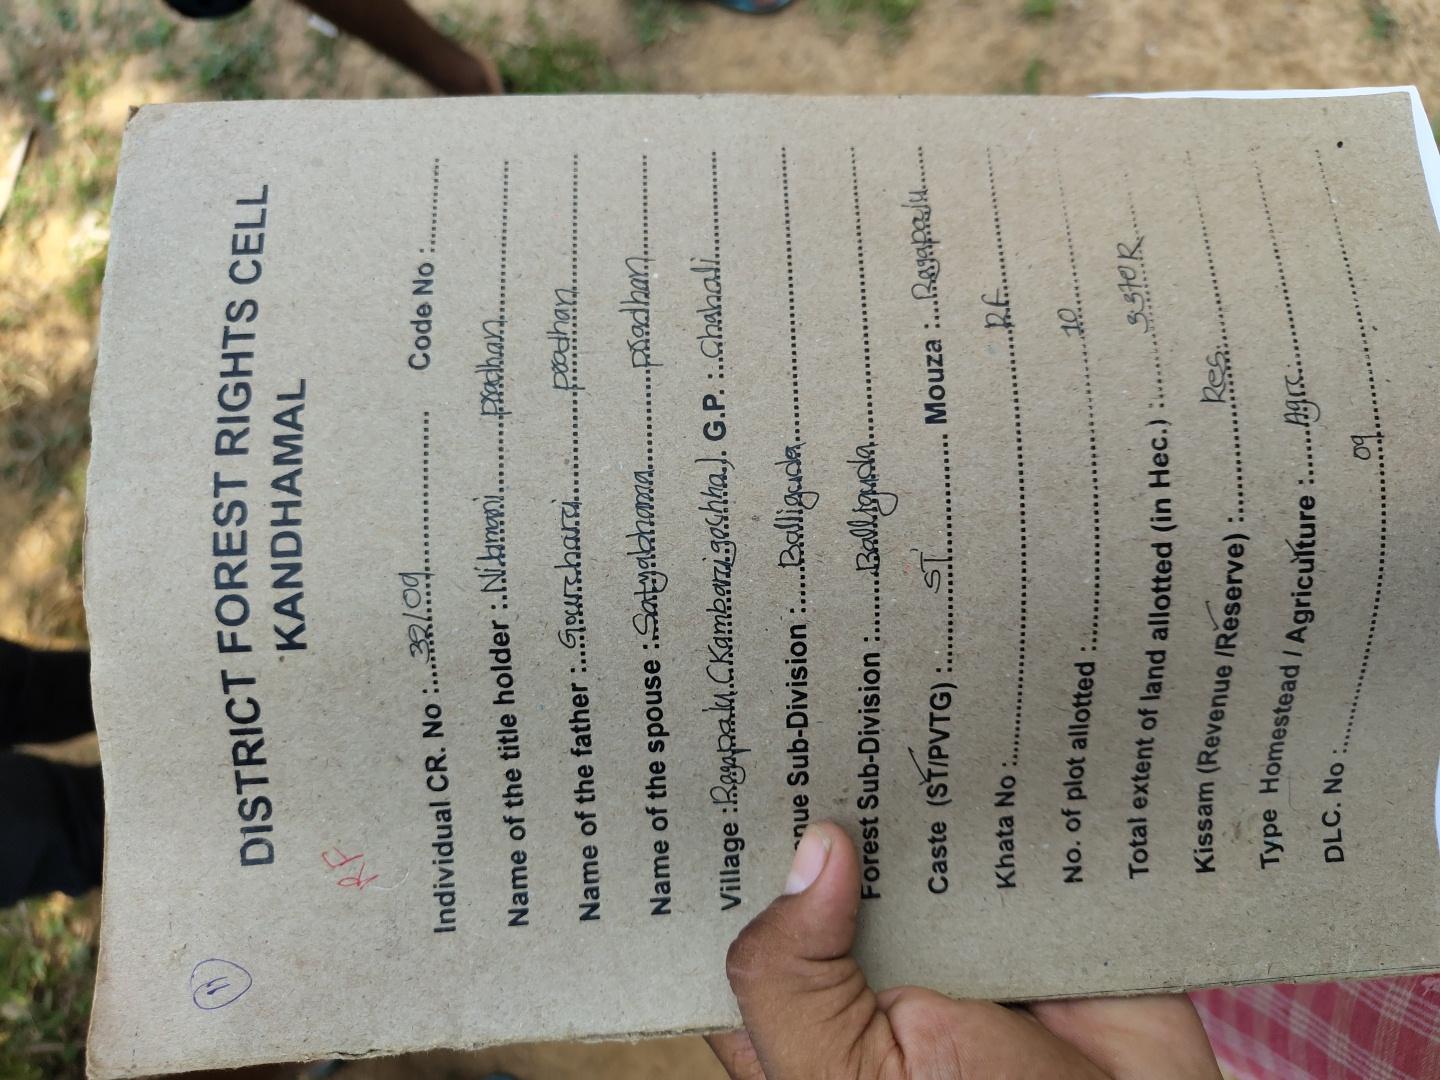 11
DISTRICT FOREST RIGHTS CELL
KANDHAMAL
RF
Individual CR. No :....32/09.... Code No :........
Name of the title holder :.Nilamani.....pradhan....
Name of the father :...Gourcharai.....pradhan....
Name of the spouse :.Satyabhama.....pradhan....
Village :Ragapalu (Kambarigochha). G.P. :..Chahali....
nue Sub-Division :....Balliguda....
Forest Sub-Division :....Balliguda....
Caste (ST/PVTG) :....ST.... Mouza :...Ragapalu....
Khata No :....RF....
No. of plot allotted :....10....
Total extent of land allotted (in Hec.) :.......
Kissam (Revenue /Reserve) :....Res....
Type Homestead / Agriculture :....Agri....
DLC. No :....09....